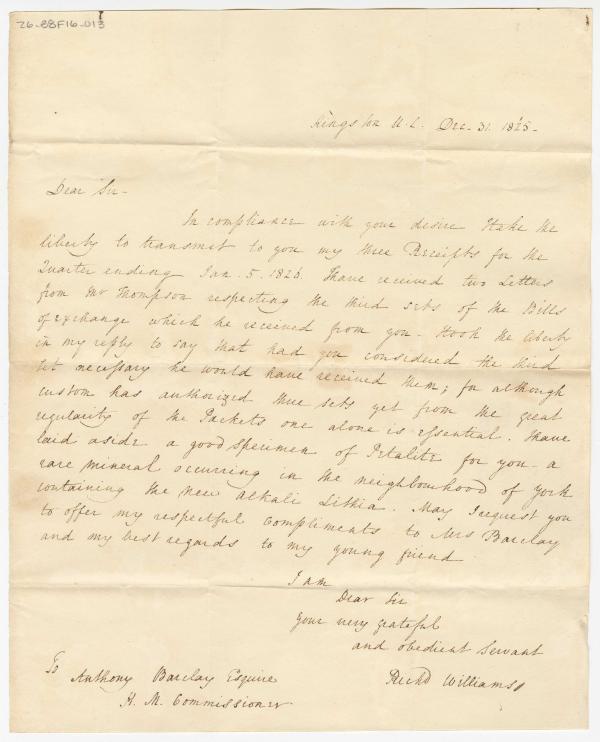 26-88F16-013
Kingston U.C. Dec. 31. 1825-
Dear Sir-
In compliance with your desire I take the
liberty to transmit to you my three Receipts for the
Quarter ending Jan. 5. 1826. I have received two Letters
from Mr Thompson respecting the third sets of the Bills
of exchange which he received from you. I took the liberty
in my reply to say that had you considered the third
set necessary he would have received them; for although
custom has authorized three sets yet from the great
regularity of the Packets one alone is essential. I have
laid aside a good specimen of Petalite for you - a
rare mineral occurring in the neighbourhood of York
containing the new alkali Lithia. May I request you
to offer my respectful Compliments to Mrs Barclay
and my best regards to my young friend
I am
Dear Sir
Your very grateful
and obedient Servant
Richd Williams
To
Anthony Barclay Esquire
H. M. Commissioner